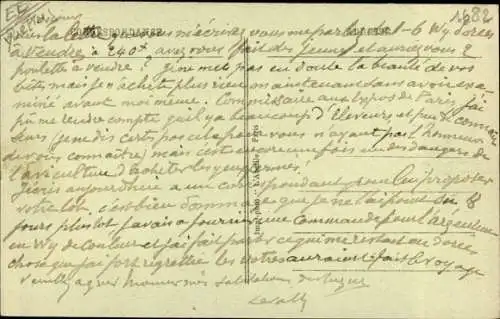 1882
CORRESPONDANCE
dans la lettre que vous m'écrivez vous me parlez de 1-6 Wy dorées
à vendre à 240f avez vous fait des jeunes et auriez vous 2
poulettes à vendre ? je ne mets pas en doute la beauté de vos
bêtes mais je n'achète plus rien maintenant sans avoir exa-
miné avant moi même. Commissaire aux expos de Paris j'ai
pu me rendre compte qu'il y a beaucoup d'éleveurs et peu de connais
seurs (je ne dis certes pas cela pour vous n'ayant pas l'honneur
de vous connaître) mais c'est encore une fois un des dangers de
l'aviculture d'acheter les yeux fermés.
J'écris aujourd'hui a un correspondant pour lui proposer
votre lot. c'est bien dommage que je ne l'ai pas su 8
jours plus tôt j'avais a fournir une commande pour l'argentine
en Wy de couleur et j'ai fait parce qui me restait en dorée
chose que j'ai fort regrettée les votres auraient fait le voyage
Veuillez agréer Monsieur mes salutations
Imp.-photo - L'Abeille - Paris